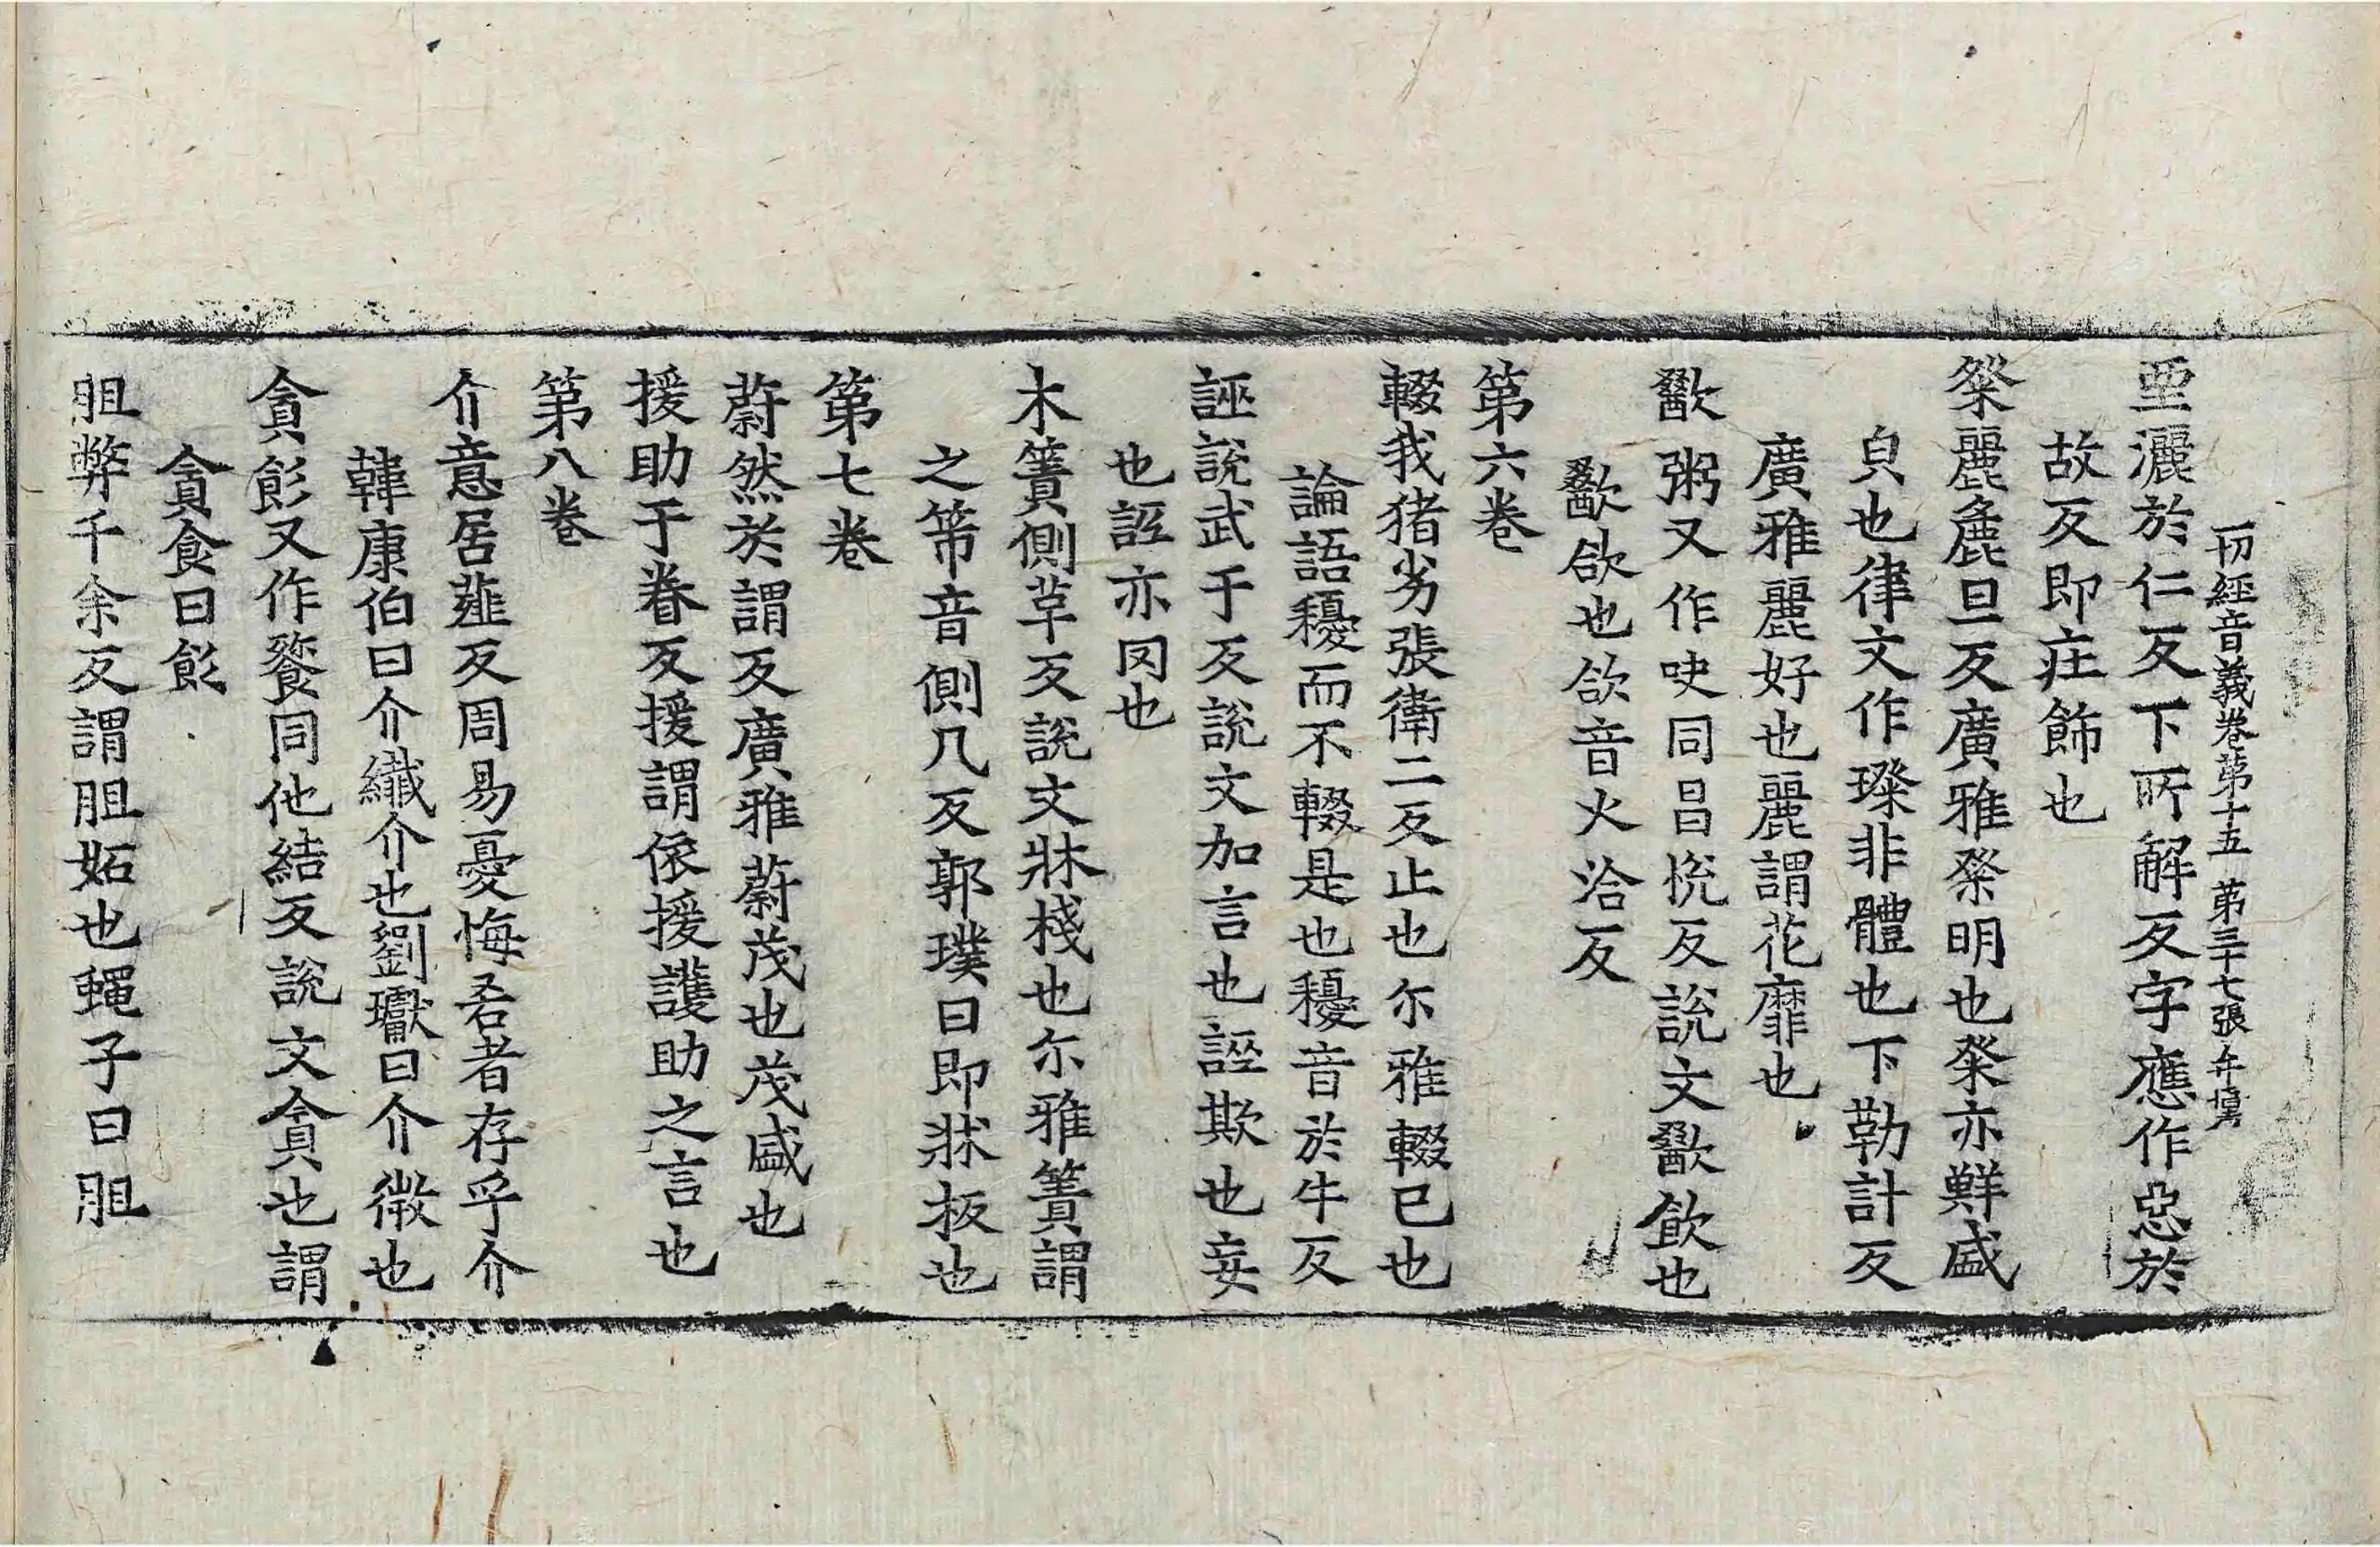 一切經音義卷第十五 第三十七張 弁
堊灑於仁反下所解反字應作惡於
故反即庄飾也
粲麗麁旦反廣雅粲明也粲亦鮮盛
皃也律文作璨非體也下勒計反
廣雅麗好也麗謂花靡也
歠粥又作吷同昌悅反說文歠飲也
歠欱也欱音火洽反
第六卷
輟我猪劣張衛二反止也尒雅輟已也
論語穫而不輟是也穫音於牛反
誣說武于反說文加言也誣欺也妄
也誣亦罔也
木簀側革反說文牀棧也尒雅簀謂
之笫音側几反郭璞曰即牀板也
第七卷
蔚然於謂反廣雅蔚茂也茂盛也
援助于眷反援謂依援護助之言也
第八卷
介意居薤反周易憂悔吝者存乎介
韓康伯曰介纖介也劉瓛曰介微也
貪飻又作餮同他結反說文貪也謂
貪食曰飻
胆弊千余反謂胆妬也蠅子曰胆